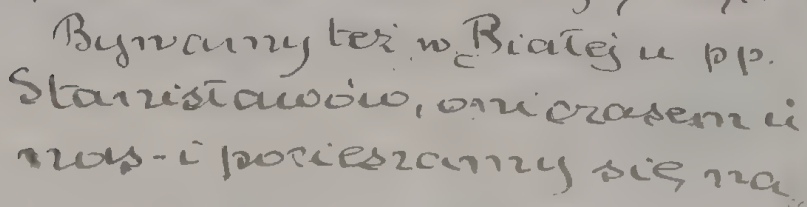 Bywamy też w Białej u pp.
Stanisławów, oni czasem u
nas - i pocieszamy się na